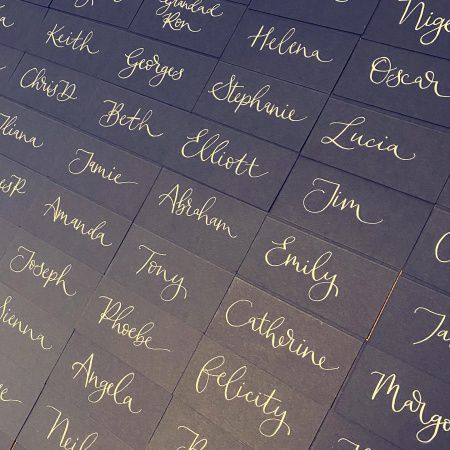 Grandad
Ron
Helena
Nige
Keith
Georges
Oscar
Chris D
Beth
Stephanie
Lucia
Jamie
Elliott
Jim
Amanda
Abraham
Emily
Joseph
Tony
Catherine
Sienna
Phoebe
Felicity
Margo
Angela
Neil